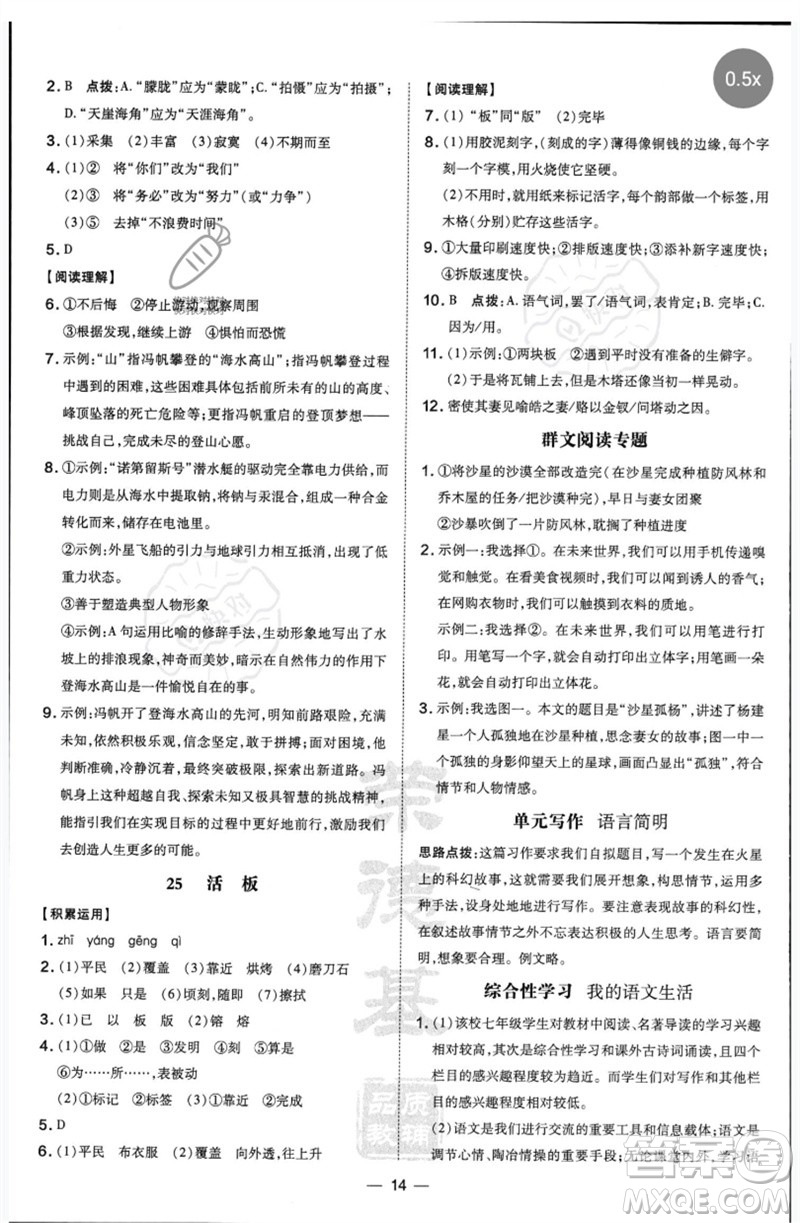 2. B　点拨：A.“朦胧”应为“蒙眬”；C.“拍慑”应为“拍摄”；
D.“天崖海角”应为“天涯海角”。
3. (1)采集　(2)丰富　(3)寂寞　(4)不期而至
4. (1)②　将“你们”改为“我们”
(2)③　将“务必”改为“努力”（或“力争”）
(3)⑤　去掉“不浪费时间”
5. D
【阅读理解】
6. ①不后悔　②停止游动，观察周围
③根据发现，继续上游　④惧怕而恐慌
7. 示例：“山”指冯帆攀登的“海水高山”；指冯帆攀登过程
中遇到的困难，这些困难包括前所未有的山的高度、
峰顶坠落的死亡危险等；更指冯帆重启的登顶梦想——
挑战自己，完成未尽的登山心愿。
8. ①示例：“诺第留斯号”潜水艇的驱动完全靠电力供给，而
电力则是从海水中提取钠，钠与汞混合，组成一种合金
转化而来，储存在电池里。
②示例：外星飞船的引力与地球引力相互抵消，形成低
重力状态。
③善于塑造典型人物形象
④示例：A句运用比喻的修辞手法，生动形象地写出了水
坡上的排浪现象，神奇而美妙，暗示在自然伟力的作用下
登海水高山是一件愉悦自在的事。
9. 示例：冯帆开了登海水高山的先河，明知前路艰险，充满
未知，依然积极乐观，信念坚定，敢于拼搏；面对突发困
难，冷静沉着，最终突破自我，探索出人生新高度。冯
帆的这种超越自我、探索未知、极具智慧的挑战精神，
能指引我们实现目标的过程中破浪前行，激励我们
去创造人生更多的可能。
25　活　板
【积累运用】
1. zhī　yáng　gěng　qì
2. (1)平民　(2)覆盖　(3)靠近　烘烤　(4)磨刀石
(5)如果　只是　(6)顷刻，随即　(7)擦拭
3. (1)已　以　板　版　(2)镕　熔
4. (1)①做　②当　③发明　④与　⑤是
⑥为……所……，表被动
(2)①标记　②标签
5. D
6. (1)平民　布衣服　(2)覆盖　向外透，往上升
【阅读理解】
7. (1)“板”同“版”　(2)完毕
8. (1)用胶泥刻字，（刻成的字）薄得像铜钱的边缘，每个字
刻一个字模，用火烧使它坚硬。
(2)不用时，就用纸来标记活字，每个韵部做一个标签，用
木格（分别）贮存这些活字。
9. ①大量印刷速度快；②排版速度快；③添补新字速度快；
④拆版速度快。
10. B　点拨：A.语气词，罢了/语气词，表肯定；B.完毕；C.
因为/用。
11. (1)示例：①两块板　②遇到平时没有准备的生僻字。
(2)于是将瓦铺上去，但是木塔还像当初一样晃动。
12. 密使其妻见喻皓之妻/赂以金钗/问塔动之因。
群文阅读专题
1. ①将沙星的沙漠全部改造完（在沙星完成种植防风林和
乔木屋的任务/把沙漠种完），早日与妻女团聚
②沙暴吹倒了一片防风林，耽搁了种植进度
2. 示例一：我选择①。在未来世界，我们可以用手机传递嗅
觉和触觉。在看美食视频时，我们可以闻到诱人的香气；
在网购衣物时，我们可以触摸到衣料的质地。
示例二：我选择②。在未来世界，我们可以用笔进行打
印。用笔写一个字，就会自动打印出立体字；用笔画一朵
花，就会自动打印出立体花。
3. 示例：我选图一。本文的题目是“沙星孤杨”，讲述了杨建
星一个人孤独地在沙星种植，思念妻女的故事；图中一
个孤独的身影仰望天上的星球，凸显出“孤独”，符合情节
特点和人物情感。
单元写作　语言简明
思路点拨：这篇习作要求我们自拟题目，写一个发生在火星
上的科幻故事，要求我们展开想象，构思情节，运用多
种手法，设身处地地进行写作。要注意表述故事的科幻性，
在叙述故事情节之外不忘表达积极的人生思考。语言要简
明，写完后注意修改。例文略。
综合性学习　我的语文生活
1. (1)该校七年级学生对教材中阅读、名著导读的学习兴趣
超过四成，其次是综合性学习和课外古诗词诵读，三个
栏目的感兴趣程度大致趋近。而学生对写作栏目的感兴
趣程度相对较低。
(2)语文是我们进行交流的重要工具和信息载体；语文是
调节心情、陶冶情操的重要手段；无论课堂内外，学习语
14
0.5x
荣德基
品质教辅
答案圈
MXQE.COM